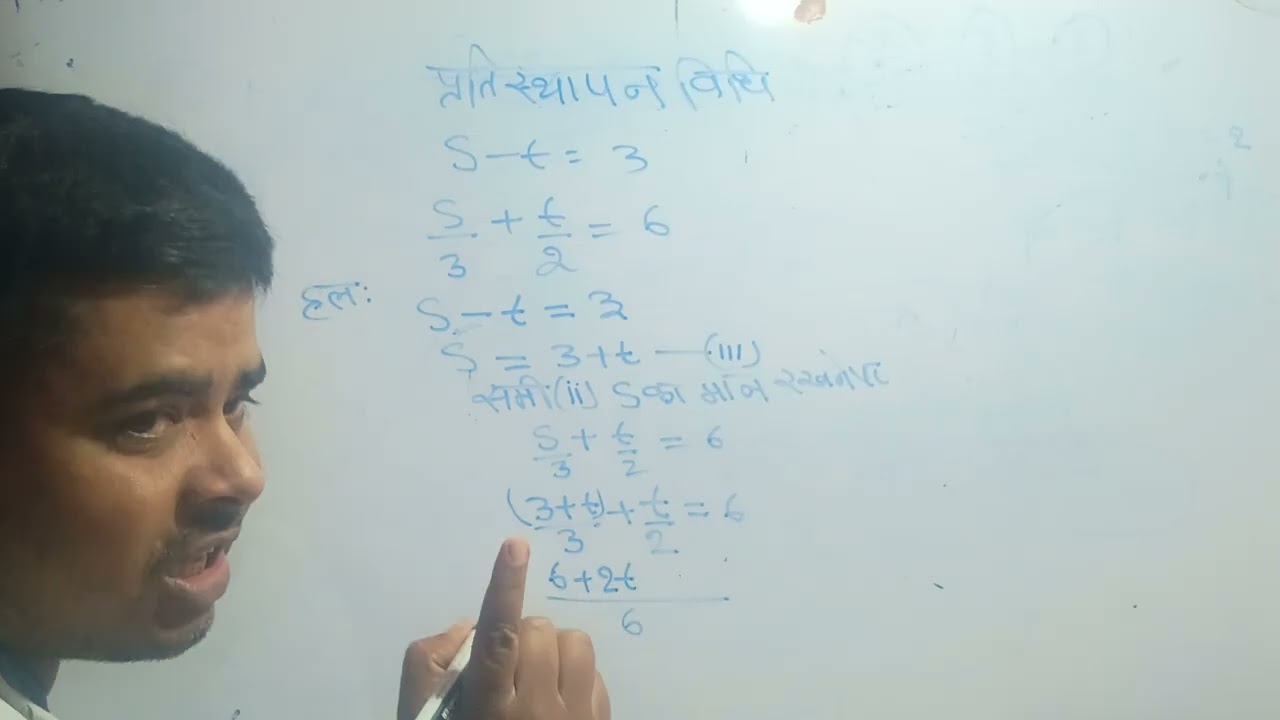 प्रतिस्थापन विधि
S - t = 3
S/3 + t/2 = 6
हल: S - t = 3
S = 3 + t —(iii)
समी (ii) S का मान रखने पर
S/3 + t/2 = 6
(3+t)/3 + t/2 = 6
6+2t/6
2